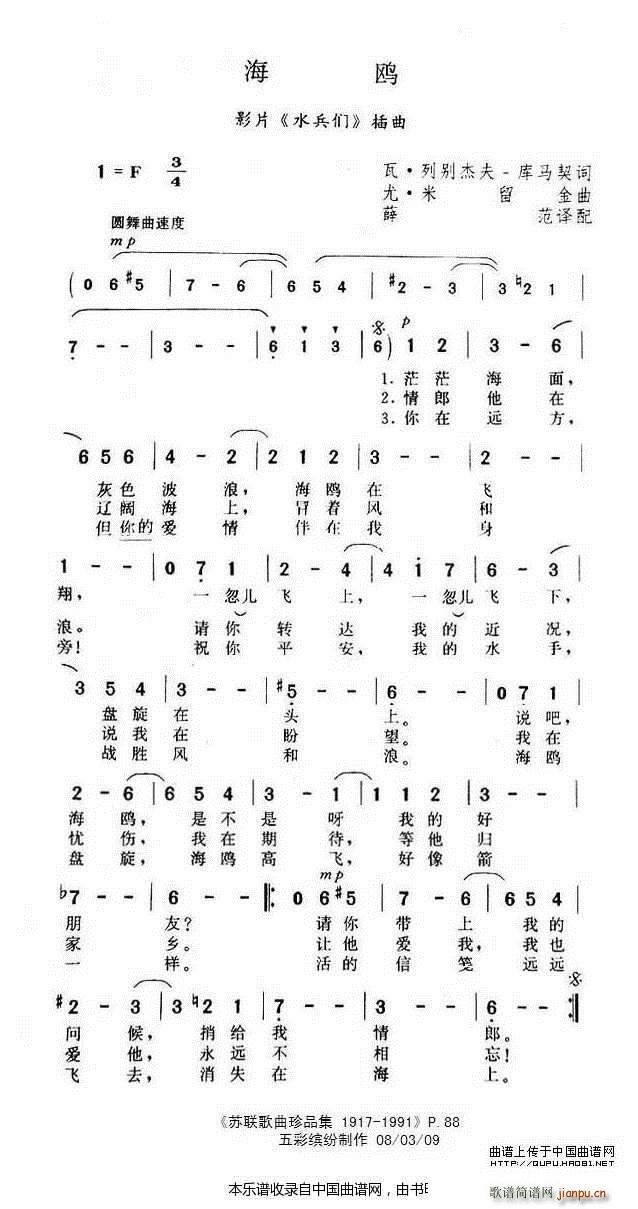 海 鸥
影片《水兵们》插曲
1 = F 3/4
瓦·列别杰夫-库马契词
尤·米留金曲
薛范译配
圆舞曲速度
mp
( 0 6 #5 | 7 - 6 | 6 5 4 | #2 - 3 | 3 ♮2 1 |
7 - - | 3 - - | 6 1 3 | 6 ) 1 2 | 3 - 6 |
p
1.茫茫海面,
2.情郎他在
3.你在远方,
6 5 6 | 4 - 2 | 2 1 2 | 3 - - | 2 - - |
灰色波浪, 海鸥在飞
辽阔海上, 冒着风和
但你的爱情 伴在我身
1 - - | 0 7 1 | 2 - 4 | 4 1 7 | 6 - 3 |
翔, 一忽儿飞上, 一忽儿飞下,
浪。 请你转达 我的近况,
旁! 祝你平安, 我的水手,
3 5 4 | 3 - - | #5 - - | 6 - - | 0 7 1 |
盘旋在头上。 说吧,
说我在盼望。 我在
战胜风和浪。 海鸥
2 - 6 | 6 5 4 | 3 - 1 | 1 1 2 | 3 - - |
海鸥, 是不是呀 我的好
忧伤, 我在期待, 等他归
盘旋, 海鸥高飞, 好像箭
mp
♭7 - - | 6 - - ‖: 0 6 #5 | 7 - 6 | 6 5 4 |
朋友? 请你带上 我的
家乡。 让他爱我, 我也
一样。 活的信笺 远远
#2 - 3 | 3 ♮2 1 | 7 - - | 3 - - | 6 - - :‖
问候, 捎给我情郎。
爱他, 永远不相忘!
飞去, 消失在海上。
《苏联歌曲珍品集 1917-1991》P.88
五彩缤纷制作 08/03/09
曲谱上传于中国曲谱网
http://QUPU.HAO81.NET
本乐谱收录自中国曲谱网,由书
歌谱简谱网
jianpu.cn